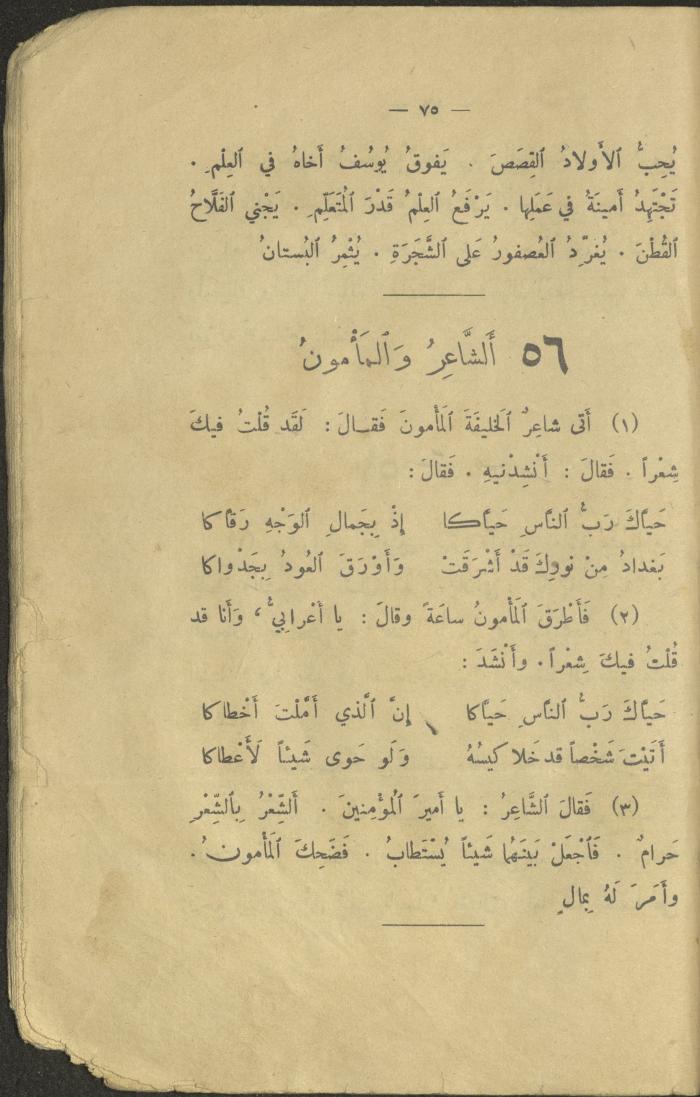 — ٧٥ —
يُحِبُّ ٱلأَولادُ ٱلقِصَصَ . يَفوقُ يُوسُفُ أَخاهُ في ٱلعِلْمِ .
تَجْتَهِدُ أَمينَةُ في عَمَلِها . يَرْفَعُ ٱلعِلْمُ قَدْرَ ٱلمُتَعَلِّمِ . يَجْني ٱلفَلَّاحُ
ٱلقُطْنَ . يُغَرِّدُ ٱلعُصفورُ عَلى ٱلشَّجَرَةِ . يُثْمِرُ ٱلبُستانُ
٥٦ أَلشَّاعِرُ وَٱلمَأْمونُ
(١) أَتى شاعِرٌ ٱلخَليفَةَ ٱلمَأْمونَ فَقالَ : لَقَد قُلْتُ فيكَ
شِعْراً . فَقالَ : أَنْشِدْنيهِ . فَقالَ :
حَيَّاكَ رَبُّ ٱلنَّاسِ حَيَّاكا إِذْ بِجَمالِ ٱلوَجْهِ رَقَّاكا
بَغدادُ مِنْ نورِكَ قَدْ أَشْرَقَتْ وَأَوْرَقَ ٱلعُودُ بِجَدْواكا
(٢) فَأَطْرَقَ ٱلمَأْمونُ ساعَةً وقالَ : يا أَعْرابِيُّ ، وَأَنا قد
قُلْتُ فيكَ شِعْراً . وأَنْشَدَ :
حَيَّاكَ رَبُّ ٱلنَّاسِ حَيَّاكا إِنَّ ٱلَّذي أَمَّلْتَ أَخْطاكا
أَتَيْتَ شَخْصاً قد خَلا كيسُهُ وَلَو حَوى شَيْئاً لَأَعْطاكا
(٣) فَقالَ ٱلشَّاعِرُ : يا أَميرَ ٱلمُؤْمِنينَ . أَلشِّعْرُ بِٱلشِّعْرِ
حَرامٌ . فَٱجْعَلْ بَينَهُما شَيئاً يُسْتَطابُ . فَضَحِكَ ٱلمَأْمونُ .
وأَمَرَ لَهُ بِمالٍ